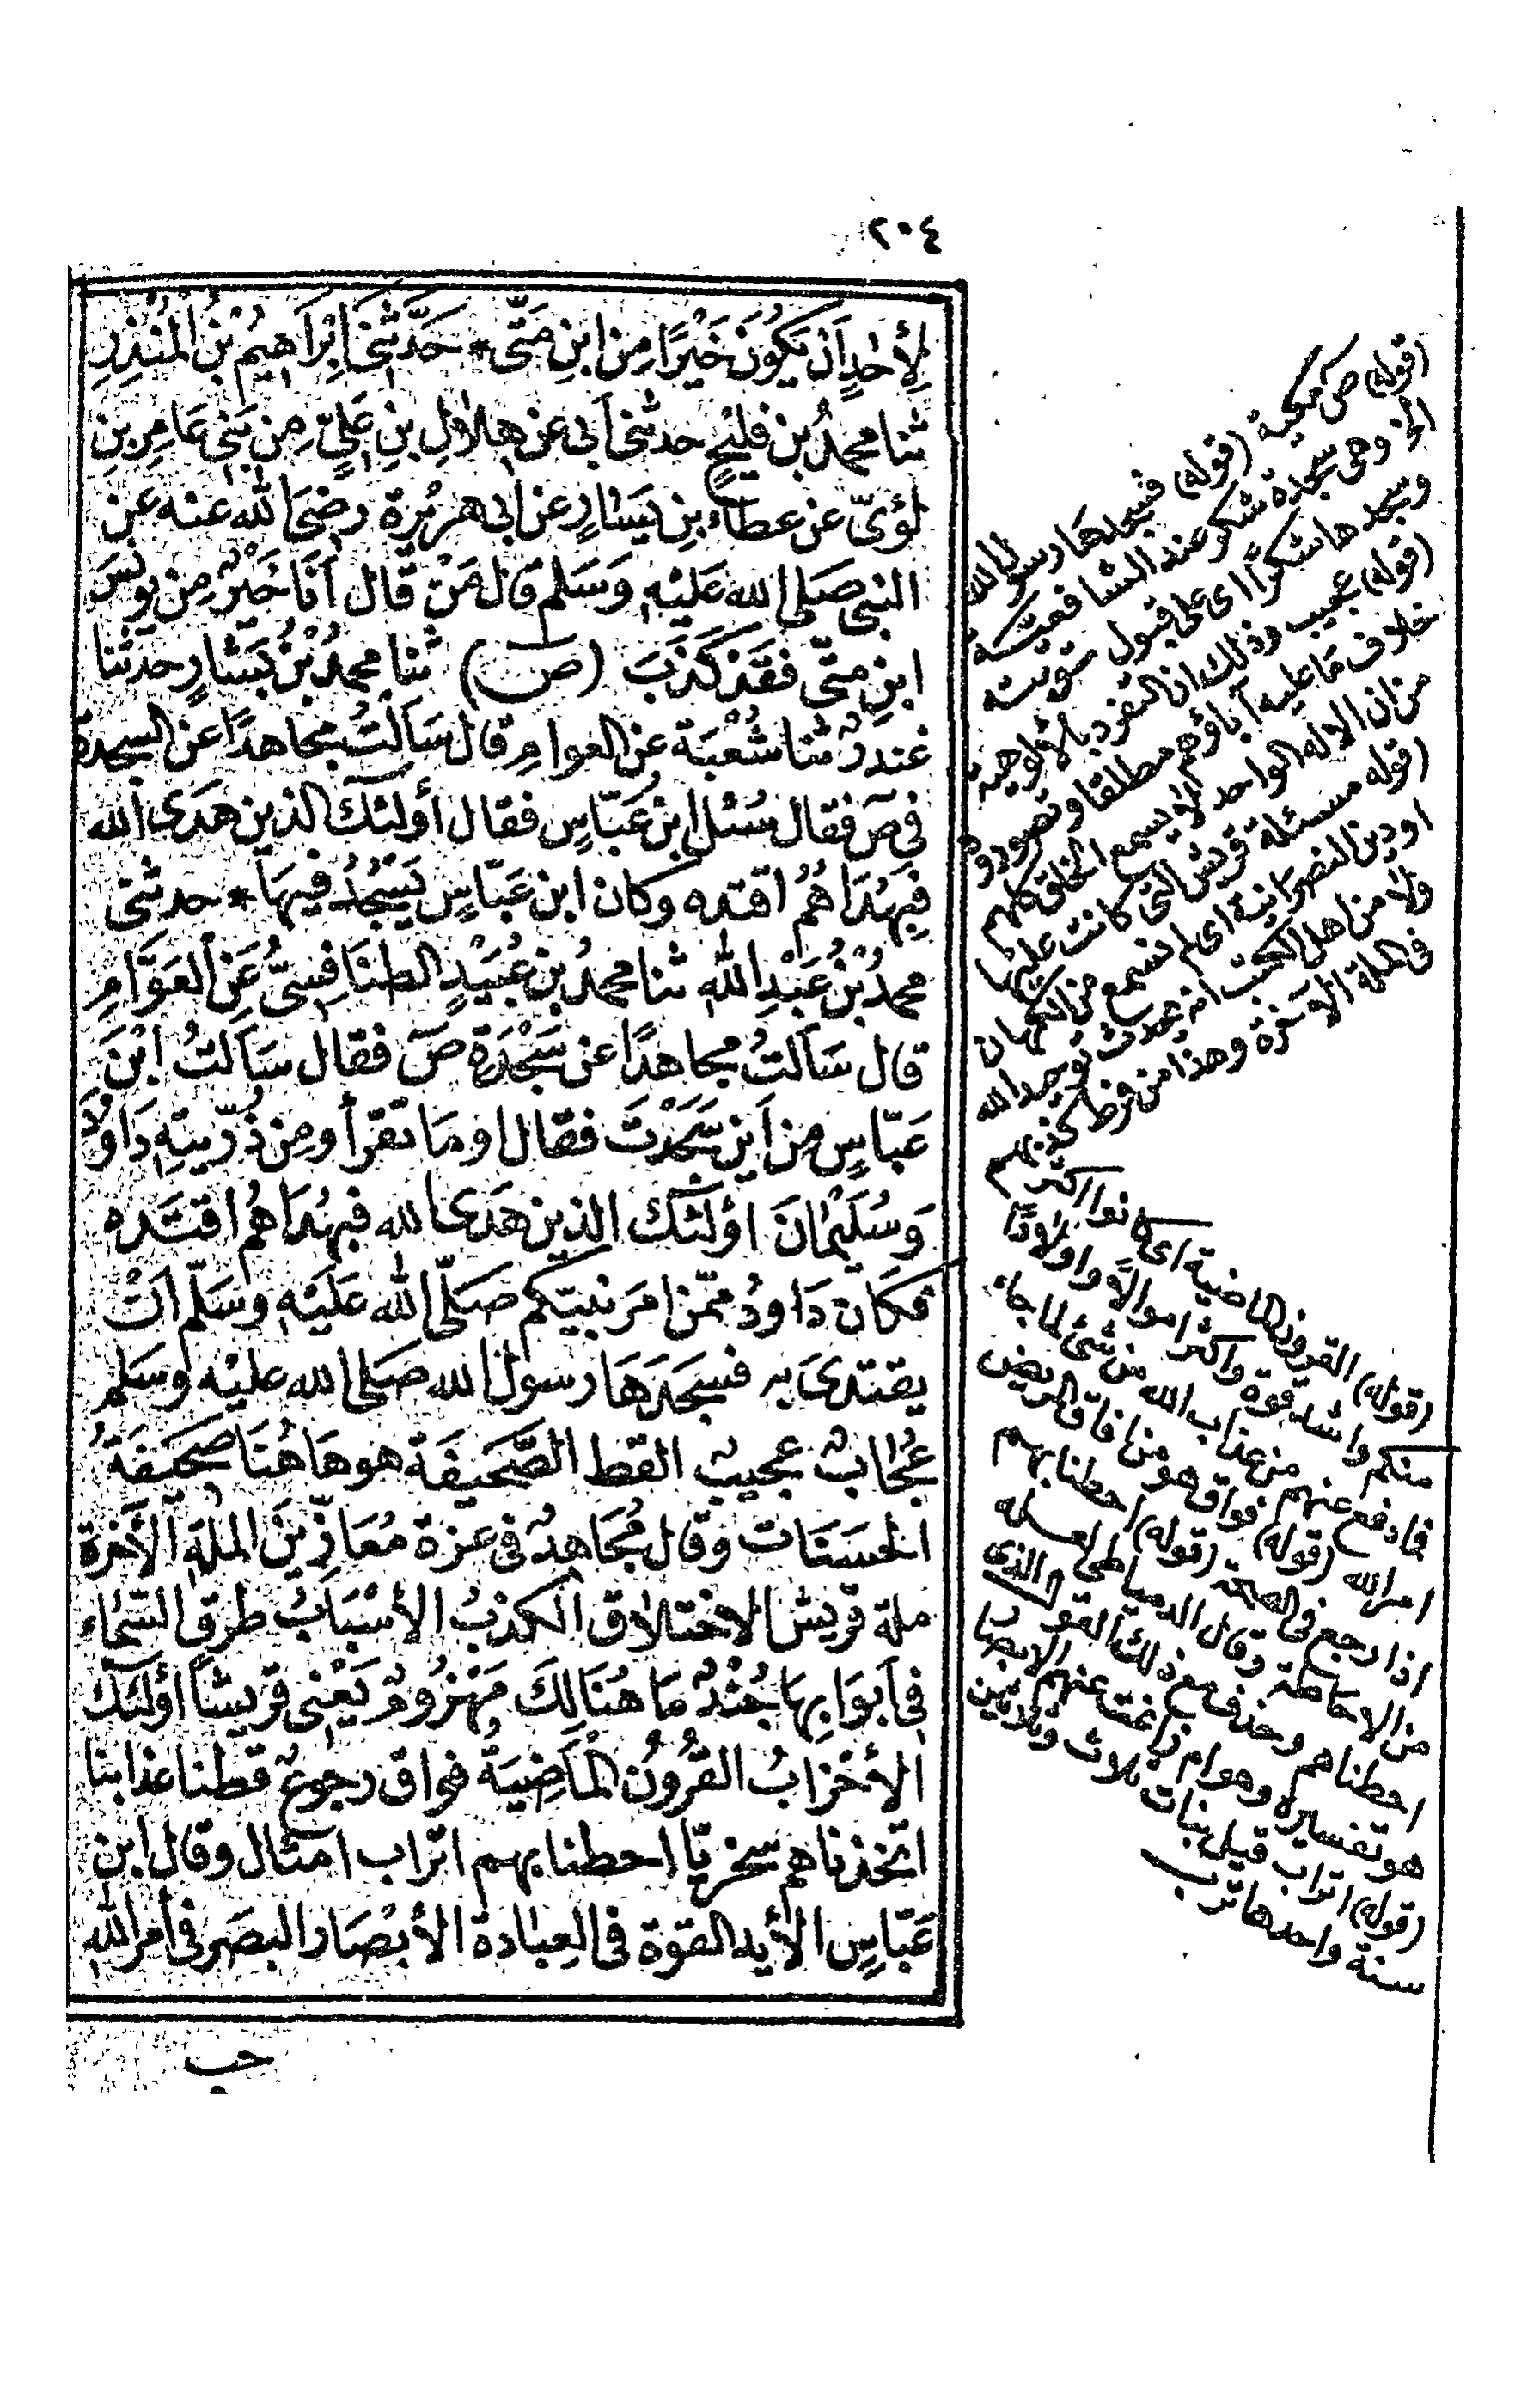 ٢٠٤
لِأَحَدٍ أَن يَكُونَ خَيْرًا مِن ابنِ مَتَّى * حَدَّثَنِي إِبْرَاهِيمُ بْنُ الْمُنْذِرِ
ثنا محمدُ بن فليحٍ حدثني أبي عن هِلالِ بنِ عَلِيٍّ مِن بَنِي عَامِرِ بنِ
لؤيّ عن عطاء بنِ يَسَارٍ عن ابي هريْرة رضيَ الله عنه عن
النبي صَلى الله عَليْهِ وَسَلم قال مَنْ قال أنَا خَيْرٌ مِن يونُسَ
ابنِ متّى فقَد كَذَبَ (ص) ثنا محمدُ بْنُ بَشارٍ حدثنا
غندرٌ ثنا شُعْبَة عن العوامِ قال سَألتُ مجاهدًا عن السجدة
في صَ فقال سُئل ابنُ عَبّاسٍ فقال أولئك الذين هَدَى الله
فَبِهُدَاهُمُ اقتده وكان ابن عَبّاسٍ يَسْجُدُ فيهَا * حدثني
محمدُ بْنُ عَبْدِ الله ثنا محمدُ بن عُبَيْدٍ الطنَافِسيُّ عَنِ العَوَّامِ
قال سَألتُ مجاهدًا عن سَجْدَةِ صَ فقال سَألتُ ابْنَ
عَبّاسٍ مِن أين سَجَدْتَ فقال اومَا تقرأ ومِن ذُرّيتِهِ دَاوُدَ
وَسُلَيْمَانَ اولئك الذين هَدَى الله فبهُدَاهُمُ اقتَده
فكَان دَاودُ ممّن امرَ نبيّكم صَلّى الله عَليْهِ وسَلّم انْ
يقتدىَ به فسجَدَهَا رسولُ الله صَلى الله عليْه وسَلم
عُجَابٌ عجيبٌ القط الصَّحيفَة هو هَاهُنَا صَحيفَةُ
الحسَنَات وقال مُجَاهدٌ في عزة مُعَازِّينَ الملَةِ الآخرة
ملة قريش الاختلاق الكذبُ الأسْبَابُ طرق السَّماء
في أبوَابِهَا جُنْدٌ مَا هُنَالِكَ مَهْزُومٌ يَعْنِي قريشًا أولئك
الأحْزَابُ القُرُونُ الماضِيَةُ فواق رجوعٌ قطنا عذابنا
اتخذناهم سخريًّا احطنا بهم اتراب امثال وقال ابن
عَبّاسٍ الأيد القوة في العِبَادة الأبْصَار البصَر في أمر الله
(قوله) ص مكية (قوله) فسجدها رسول الله
الخ وهي سجدة شكر عند الشافعية
وسجدها شكرًا اى على قبول توبته
(قوله) عجيب وذلك ان التفرد بالألوهية
خلاف ما عليه آباؤهم مطلقا وتصوروه
من ان الاله الواحد لا يسع الخلق كلهم
(قوله) مسئلة قريش التي كانت عليها
او دين النصرانية اى لم نسمع من الكهان
ولا من اهل الكتب انه يحدث توحيد الله
في الملة الآخرة وهذا من فرط كذبهم
(قوله) القرون الماضية اى كانوا اكثر
منكم واشد قوة واكثر اموالًا واولادًا
فما دفع عنهم من عذاب الله من شئ لما جاء
امر الله (قوله) فواق هو من افاق المريض
اذا رجع في الصحة (قوله) احطنا بهم
من الاحاطة وقال الدمياطي لعله
احطناهم وحذف مع ذلك القول الذى
هو تفسيره وهو ام زاغت عنهم الابصار
(قوله) اتراب قيل بنات ثلاث وثلاثين
سنة واحدها ترب
حب